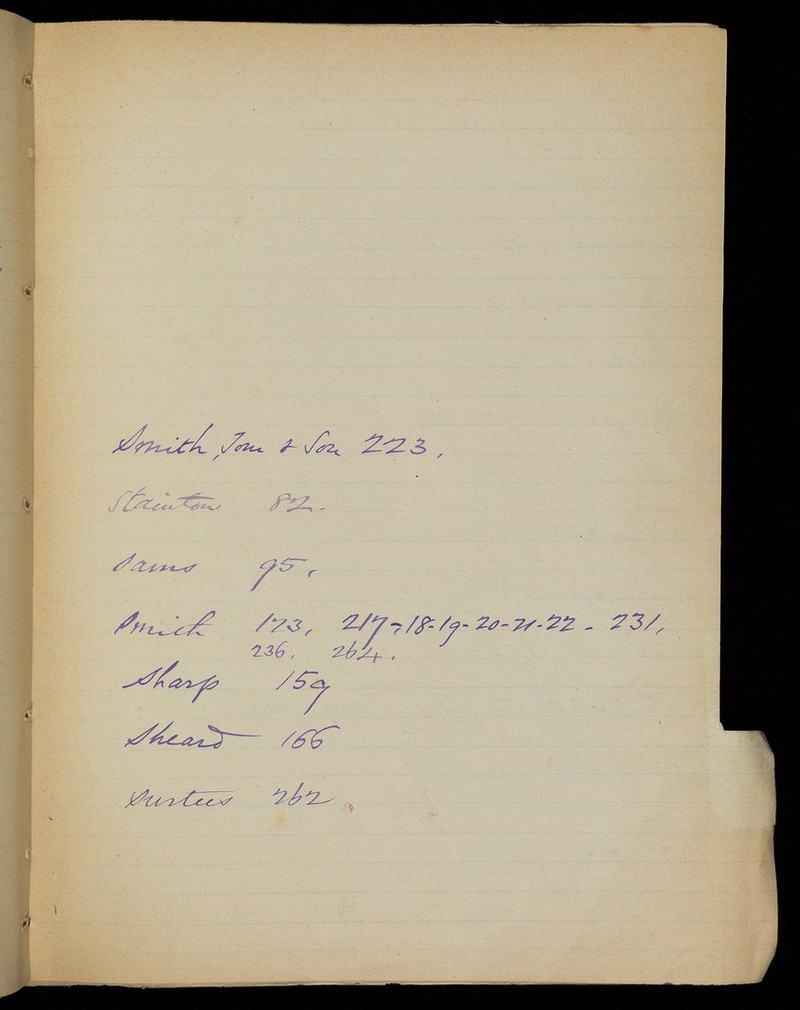 Smith, Tom & Son 223.
Stainton 82.
Sams 95.
Smith 123, 217-18-19-20-21-22 - 231,
236, 264.
Sharp 159
Sheard 166
Surtees 262